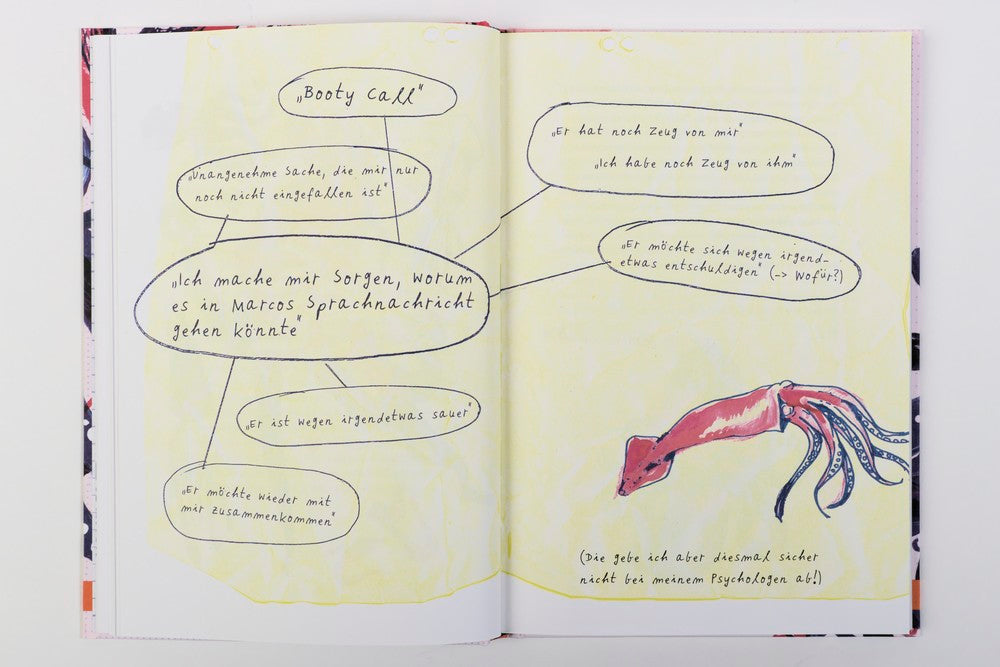 „Booty Call“
„Unangenehme Sache, die mir nur
noch nicht eingefallen ist“
„Ich mache mir Sorgen, worum
es in Marcos Sprachnachricht
gehen könnte“
„Er ist wegen irgendetwas sauer“
„Er möchte wieder mit
mir zusammenkommen“
„Er hat noch Zeug von mir“
„Ich habe noch Zeug von ihm“
„Er möchte sich wegen irgend-
etwas entschuldigen“ (-> Wofür?)
(Die gebe ich aber diesmal sicher
nicht bei meinem Psychologen ab!)